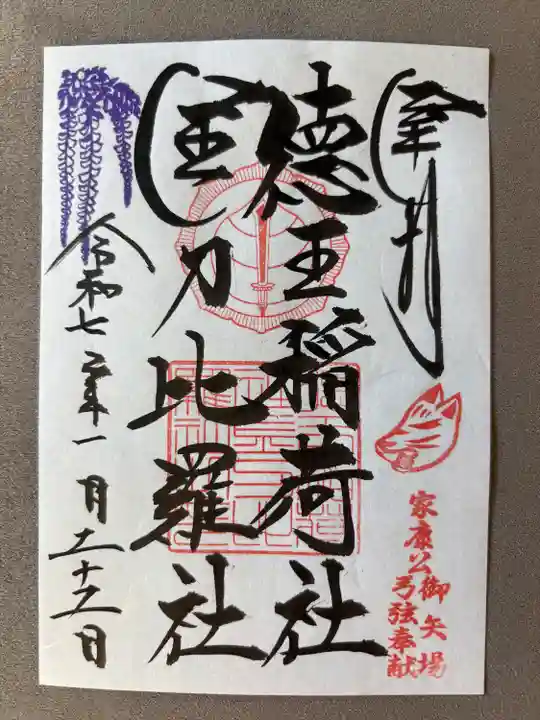 奉拝
家康公御矢場
弓弦奉献
徳王稲荷社
金刀比羅社
令和七年一月二十日